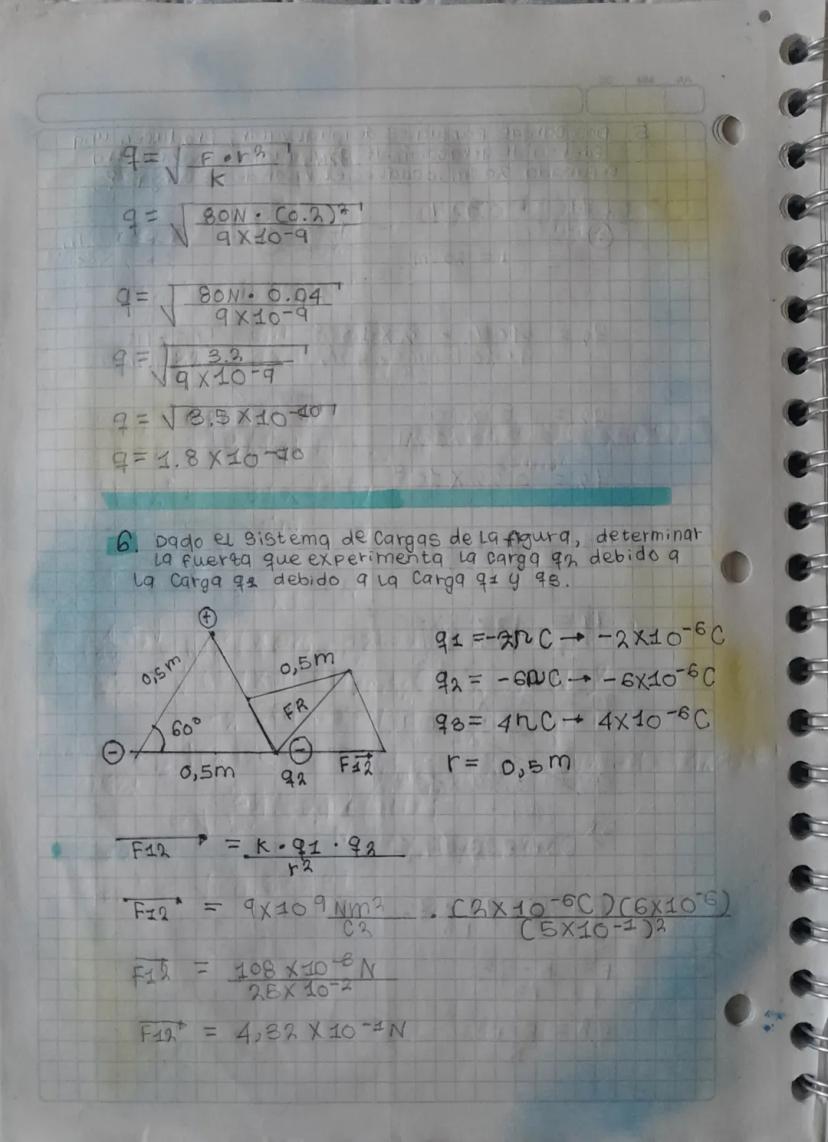 q = √ F • r² / K
q = √ 80N • (0.2)² / 9 X 10-9
q = √ 80N • 0.04 / 9 X 10-9
q = √ 3.2 / 9 X 10-9
q = √ 3.5 X 10-10
q = 1.8 X 10-10
6. Dado el sistema de cargas de la figura, determinar
la fuerza que experimenta la carga q2 debido a
la carga q1 debido a la carga q1 y q3.
+
0,5m
0,5m
q1 = -2 C → -2X10-6C
FR
q2 = -6 C → -6X10-6C
60°
q3 = 4 C → 4X10-6C
-
-
0,5m
q2
F12
r = 0,5m
F12 = K • q1 • q2 / r²
F12 = 9X10 9 Nm² / C2 . (2X10-6C)(6X10-6) / (5X10-1)2
F12 = 108 X10-6N / 25X10-2
F12 = 4,32 X 10-1N